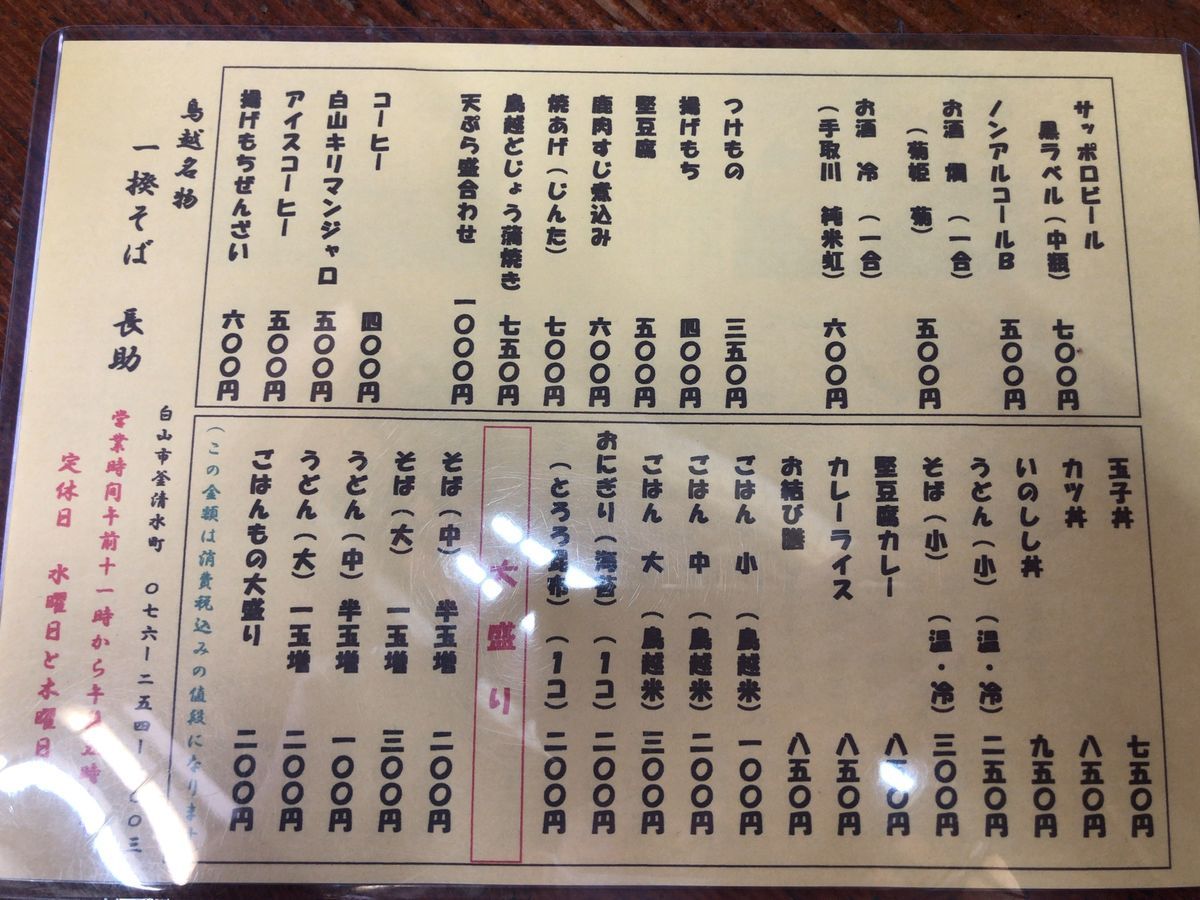 サッポロビール
黒ラベル（中瓶） 七〇〇円
ノンアルコールB 五〇〇円
お酒 燗 （一合）
（菊姫 菊） 五〇〇円
お酒 冷 （一合）
（手取川 純米虹） 六〇〇円
つけもの 三五〇円
揚げもち 四〇〇円
堅豆腐 五〇〇円
鹿肉すじ煮込み 六〇〇円
焼あげ（じんた） 七〇〇円
鳥越どじょう蒲焼き 七五〇円
天ぷら盛合わせ 一〇〇〇円
コーヒー 四〇〇円
白山キリマンジャロ 五〇〇円
アイスコーヒー 五〇〇円
揚げもちぜんざい 六〇〇円
玉子丼 七五〇円
カツ丼 八五〇円
いのしし丼 九五〇円
うどん（小）（温・冷） 二五〇円
そば（小） （温・冷） 三〇〇円
堅豆腐カレー 八五〇円
カレーライス 八五〇円
お結び膳 八五〇円
ごはん 小 （鳥越米） 一〇〇円
ごはん 中 （鳥越米） 二〇〇円
ごはん 大 （鳥越米） 三〇〇円
おにぎり（海苔）（1コ） 二〇〇円
（とろろ昆布）（1コ） 二〇〇円
大盛り
そば（中） 半玉増 二〇〇円
そば（大） 一玉増 三〇〇円
うどん（中） 半玉増 一〇〇円
うどん（大） 一玉増 二〇〇円
ごはんもの大盛り 二〇〇円
（この金額は消費税込みの値段になります
鳥越名物
一揆そば 長助
白山市釜清水町 〇七六ー二五四ー 〇三
営業時間午前十一時から午後 時
定休日 水曜日と木曜日